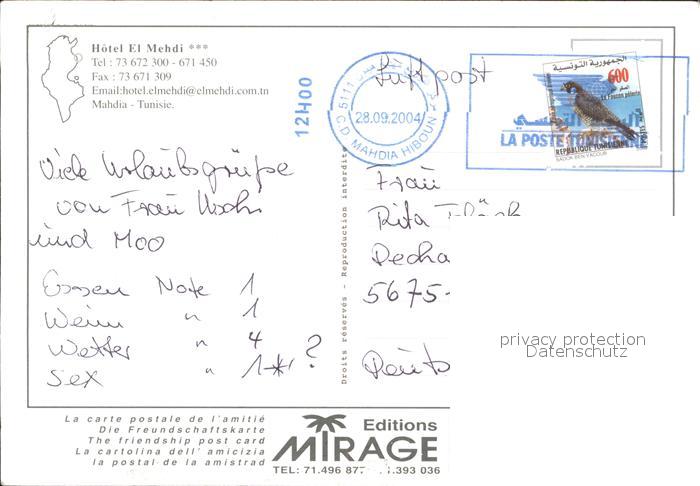 Hôtel El Mehdi ***
Tel : 73 672 300 - 671 450
Fax : 73 671 309
Email:hotel.elmehdi@elmehdi.com.tn
Mahdia - Tunisie.
12H00
5111
28.09.2004
C.D. MAHDIA HIBOUN
Luftpost
الجمهورية التونسية
600
Le Faucon pèlerin
LA POSTE TUNISIENNE
REPUBLIQUE TUNISIENNE
Viele Urlaubsgrüße
von Frau
und Moo
Essen Note 1
Wein " 1
Wetter " 4
Sex " 1*?
Droits réservés - Reproduction interdite
Frau
Rita
Decha
5675-
La carte postale de l'amitié
Die Freundschaftskarte
The friendship post card
La cartolina dell' amicizia
la postal de la amistrad
Editions
MIRAGE
TEL: 71.496 877 .393 036
privacy protection
Datenschutz